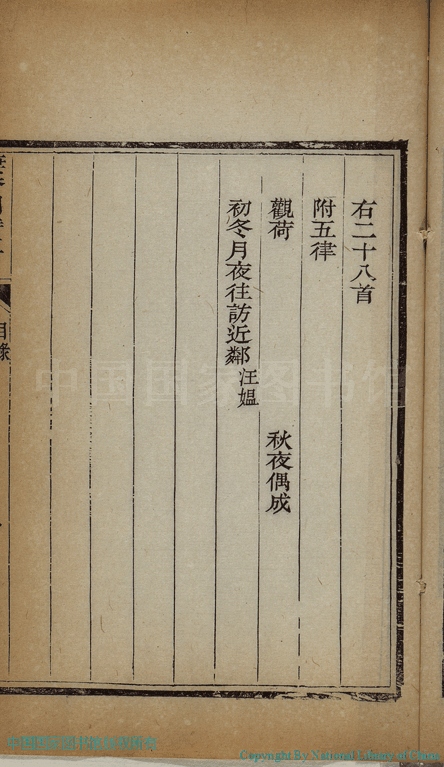 右二十八首
附五律
觀荷 秋夜偶成
初冬月夜往訪近鄰汪媼
目錄
中国国家图书馆
Copyright By National Library of China